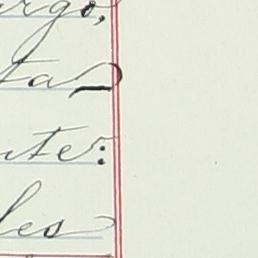 rgo,
ta-
nte:
les